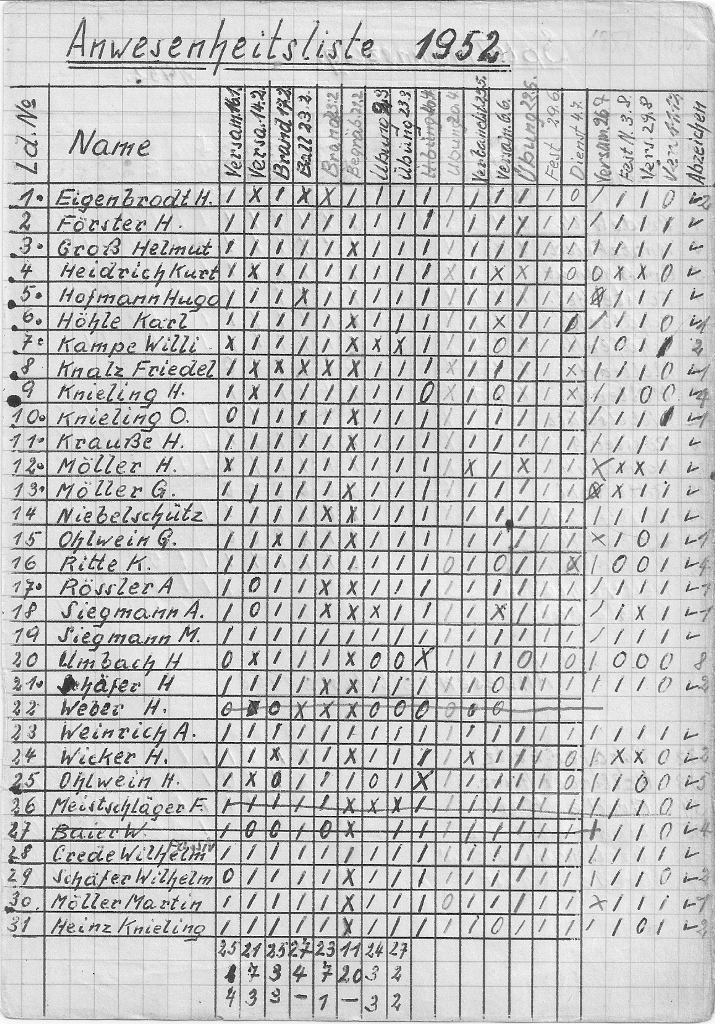 Anwesenheitsliste 1952
Ld. No Name Versam.16.1. Versa.14.2. Brand 17.2. Ball 23.2. Brand Begräb. Übung 9.3 Übung 23.3 Übung Übung 20.4. Versam.6.6. Übung 22.5. Fest 29.6. Dienst 4.7. Versam. Fest N. 3.8 Vers. 29.8 Abzeichen
1. Eigenbrodt H. / X / X X / / / / / / / / / O / / / O ✓ 2
2 Förster H. / / / / / / / / / / / / / / / / / / / ✓
3. Groß Helmut / / / / / X / / / / / / / / / / / / / ✓
4 Heidrich Kurt / X / / / / / / / X / X X / O O X X O ✓
5. Hofmann Hugo / / / X / / / / / / / / / / / / / / ✓
6. Höhle Karl / / / / / X / / / / / X / / / / / O ✓ 1
7. Kampe Willi X / / / / X X X / / / O / / / / O / / 2
8 Knalz Friedel / X X X X X / / / X / / / / X / / / O ✓ 1
9 Knieling H. / X / / / / / / O X / O / / X / / O O ✓ 4
10. Knieling O. O / / / / X / / / / / / / / / / / / / ✓ 1
11. Krauße H. / / / / / X / / / / / / / / / / / / / ✓
12. Möller H. X / / / / / / / / / X / X / / X X X / ✓
13. Möller G. / / / / / X / / / / / / / / / X / / ✓
14 Niebelschütz / / / / X X / / / / / / / / / / / / / ✓
15 Ohlwein G. / / X / / X / / / / / / / / / X / O / ✓ 1
16 Ritte K. / / / / / / / / / O / O / / X / O O / ✓ 4
17. Rössler A / O / / X X / / / / / / / / / / / / / ✓ 1
18 Siegmann A. / O / / X X X / / / / X / / / / / X / ✓ 1
19 Siegmann M. / / / / / / / / / / / / / / / / / / / ✓
20 Umbach H O X / / / X O O X / / / O / O / O O O 8
21. Schäfer H / / / / X X / / / / / O / / / / / / O ✓ 2
22 Weber H. O O X X X O O O O O O
23 Weinrich A. / / / / / / / / / / / / / / / / / / / ✓
24 Wicker H. / / X / / X / / / / X / / / O / X X O ✓ 2
25 Ohlwein H. / X O / / / O / X / / / / / O / / O O ✓ 5
26 Meistschläger F. / / / / / X X X / / / / / / / / / / O ✓
27 Baier W. / O O / O X / / / / / / / / / / / O ✓ 4
28 Crede Wilhelm / / / / / / / / / / / / / / / / / / / ✓
29 Schäfer Wilhelm O / / / / X / / / / / / / / / / / / O ✓ 2
30. Möller Martin / / / / / X / / / O / / / / / X / / / ✓ 1
31 Heinz Knieling / / / / / X / / / / / O / / / / / O / ✓ 2
25 21 25 27 23 11 24 27
7 3 4 7 20 3 2
4 3 3 – 1 – 3 2